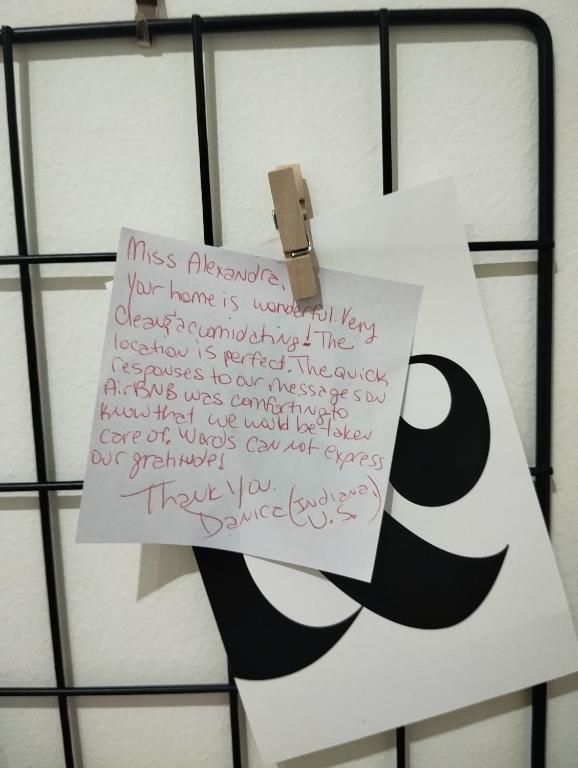 Miss Alexandra,
Your home is wonderful. Very
Clean & accomidating! The
location is perfect. The quick
responses to our messages on
AirBNB was comforting to
know that we would be taken
care of. Words can not express
our gratitude!
Thank You.
Danica (Indiana,
U.S.)